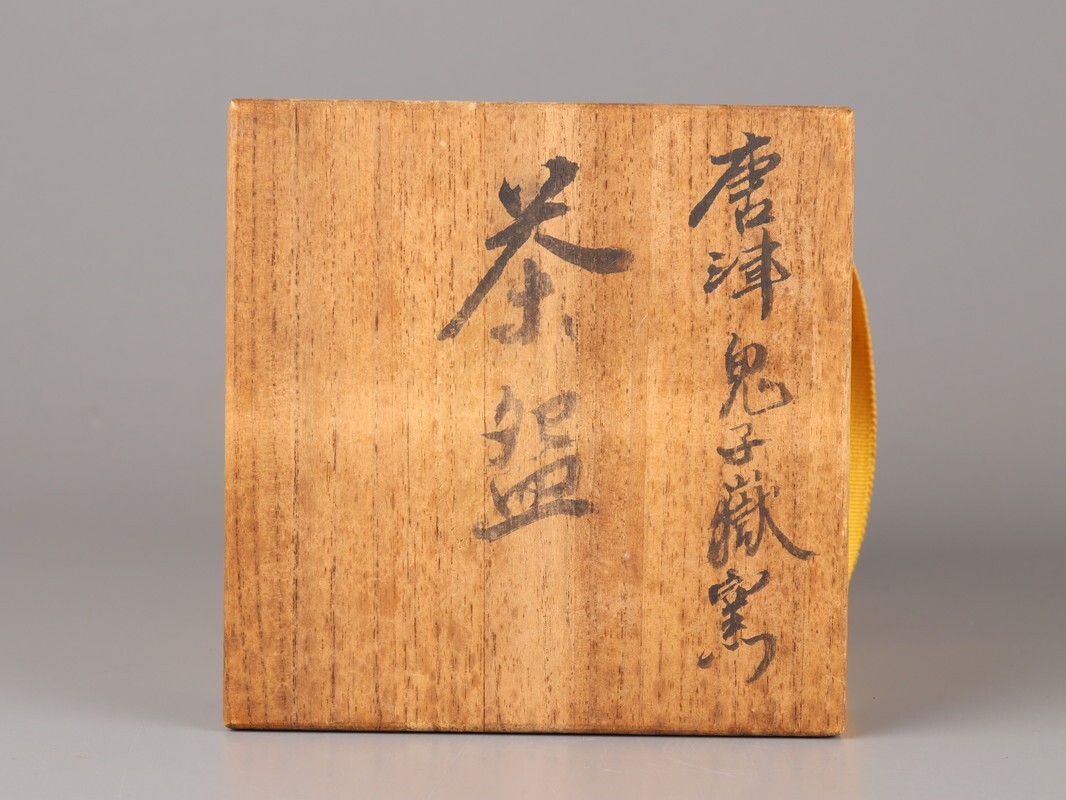 唐津鬼子嶽窯
茶盌